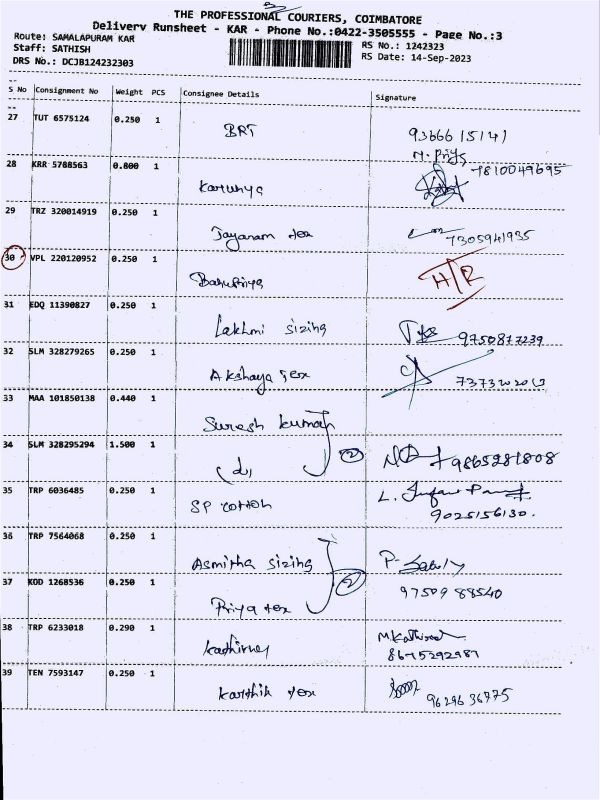 THE PROFESSIONAL COURIERS, COIMBATORE
Delivery Runsheet - KAR - Phone No.:0422-3505555 - Page No.:3
Route: SAMALAPURAM KAR
RS No.: 1242323
Staff: SATHISH
RS Date: 14-Sep-2023
DRS No.: DCJB124232303
S No Consignment No Weight PCS Consignee Details Signature
27 TUT 6575124 0.250 1
BRT 9366615141
28 KRR 5788563 0.800 1
Karunya 7810049695
29 TRZ 320014919 0.250 1
Jayaram tex 7305941935
30 VPL 220120952 0.250 1
Banupriya H/R
31 EDQ 11390827 0.250 1
Lakhmi sizing 9750877239
32 SLM 328279265 0.250 1
Akshaya tex
33 MAA 101850138 0.440 1
Suresh kumar
34 SLM 328295294 1.500 1
(2) 9865281808
35 TRP 6036485 0.250 1
SP cotton L.
9025156130.
36 TRP 7564068 0.250 1
Asmitha sizing P-
37 KOD 1268536 0.250 1
(2)
Priya tex 9750988540
38 TRP 6233018 0.290 1
M.Kathirvel
39 TEN 7593147 0.250 1
Karthik tex 9629636775